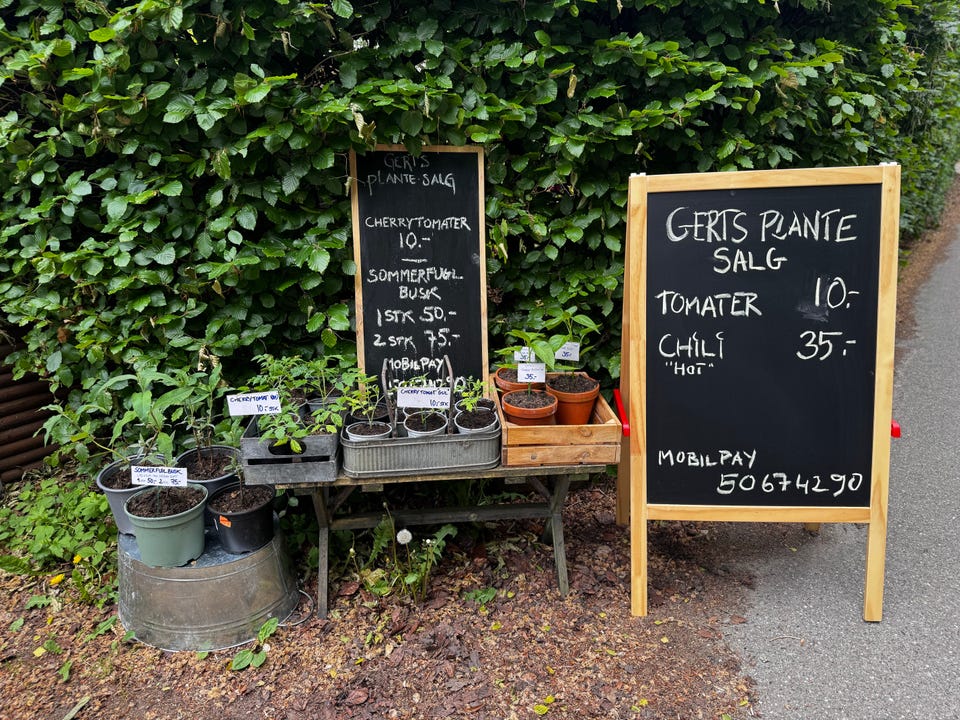 GERTS
PLANTE SALG
CHERRYTOMATER
10.-
SOMMERFUGL.
BUSK
1 STK 50.-
2 STK 75.-
MOBILPAY
GERTS PLANTE
SALG
TOMATER 10.-
CHILI 35.-
"HOT"
MOBILPAY
50674290
CHERRYTOMAT
CHERRYTOMAT GUL
SOMMERFUGLBUSK
35.-
35.-